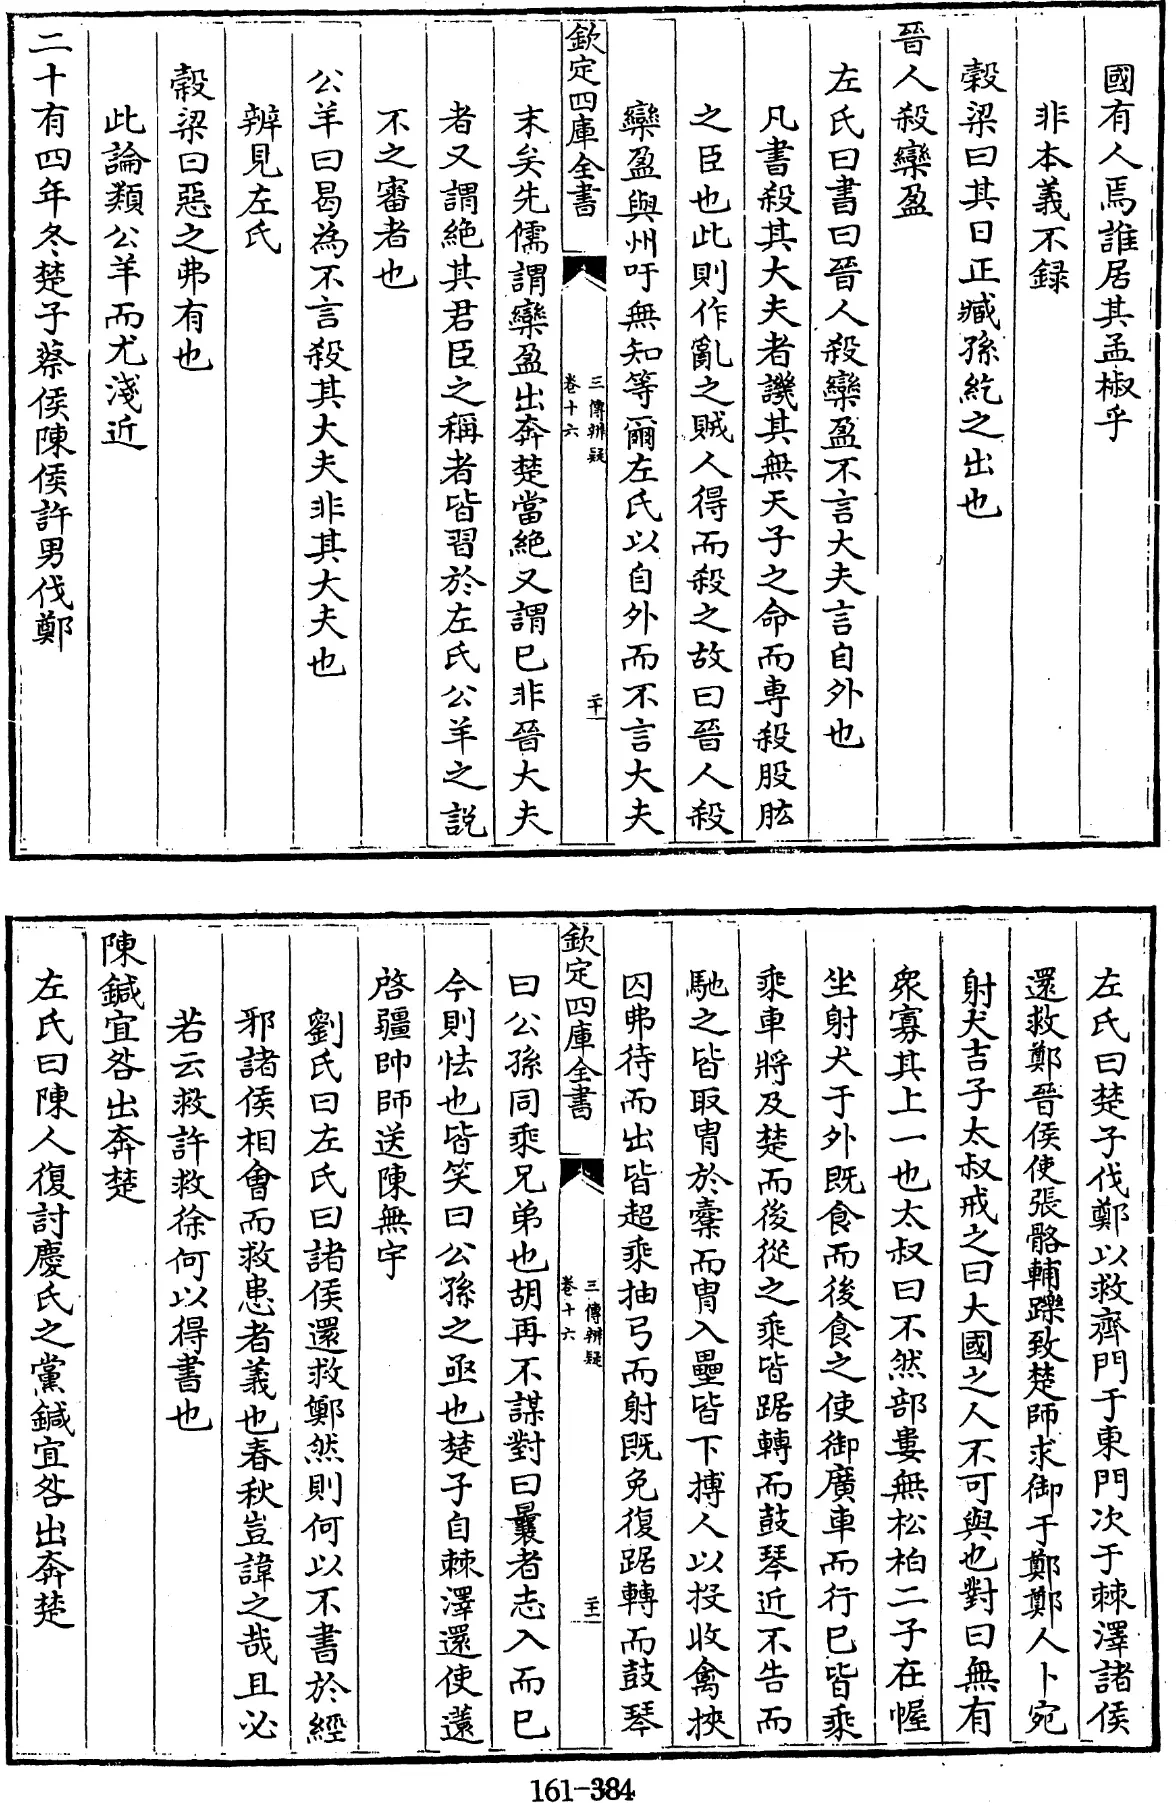 國有人焉誰居其孟椒乎
非本義不録
榖梁曰其日正臧孫紇之出也
晉人殺欒盈
左氏曰書曰晉人殺欒盈不言大夫言自外也
凡書殺其大夫者譏其無天子之命而専殺股肱
之臣也此則作亂之賊人得而殺之故曰晉人殺
欒盈與州吁無知等爾左氏以自外而不言大夫
欽定四庫全書
三傳辨疑
卷十六
二十一
末矣先儒謂欒盈出奔楚當絶又謂已非晉大夫
者又謂絶其君臣之稱者皆習於左氏公羊之説
不之審者也
公羊曰曷為不言殺其大夫非其大夫也
辨見左氏
榖梁曰惡之弗有也
此論類公羊而尤淺近
二十有四年冬楚子蔡侯陳侯許男伐鄭
左氏曰楚子伐鄭以救齊門于東門次于棘澤諸侯
還救鄭晉侯使張骼輔躒致楚師求御于鄭鄭人卜宛
射犬吉子太叔戒之曰大國之人不可與也對曰無有
衆寡其上一也太叔曰不然部婁無松柏二子在幄
坐射犬于外既食而後食之使御廣車而行巳皆乘
乘車將及楚而後從之乘皆踞轉而鼓琴近不告而
馳之皆取胄於櫜而胄入壘皆下搏人以投收禽挾
囚弗待而出皆超乘抽弓而射既免復踞轉而鼓琴
欽定四庫全書
三傳辨疑
卷十六
二十二
曰公孫同乘兄弟也胡再不謀對曰曩者志入而已
今則怯也皆笑曰公孫之亟也楚子自棘澤還使薳
啓疆帥師送陳無宇
劉氏曰左氏曰諸侯還救鄭然則何以不書於經
邪諸侯相會而救患者義也春秋豈諱之哉且必
若云救許救徐何以得書也
陳鍼宜咎出奔楚
左氏曰陳人復討慶氏之黨鍼宜咎出奔楚
161-384